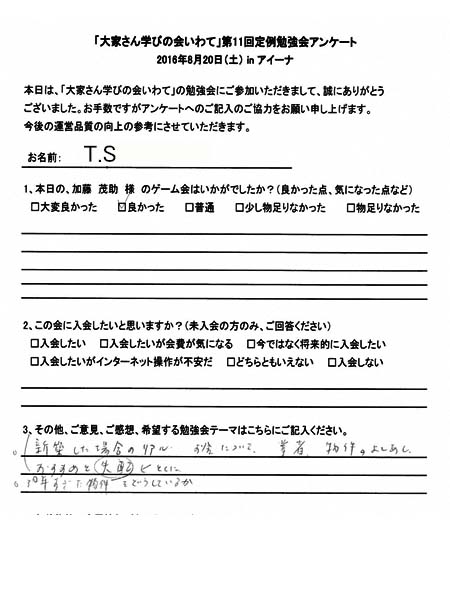 「大家さん学びの会いわて」第11回定例勉強会アンケート
2016年8月20日（土） in アイーナ
本日は、「大家さん学びの会いわて」の勉強会にご参加いただきまして、誠にありがとう
ございました。お手数ですがアンケートへのご記入のご協力をお願い申し上げます。
今後の運営品質の向上の参考にさせていただきます。
お名前： T.S
1、本日の、加藤 茂助 様 のゲーム会はいかがでしたか？（良かった点、気になった点など）
□大変良かった ☑良かった □普通 □少し物足りなかった □物足りなかった
2、この会に入会したいと思いますか？（未入会の方のみ、ご回答ください）
□入会したい □入会したいが会費が気になる □今ではなく将来的に入会したい
□入会したいがインターネット操作が不安だ □どちらともいえない □入会しない
3、その他、ご意見、ご感想、希望する勉強会テーマはこちらにご記入ください。
新築した場合のリアル お金について、業者、物件のよしあし
おすすめと失敗をとくに
10年すぎた物件をどうしているか